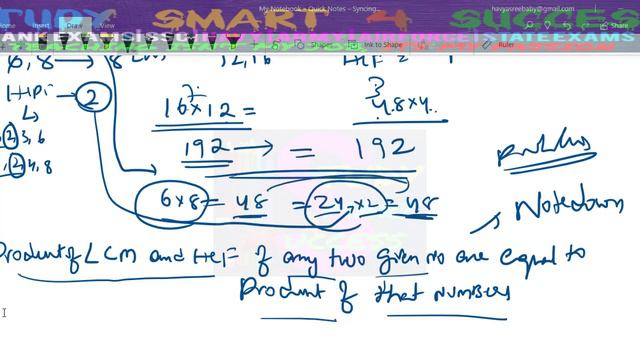 My Notebook – Quick Notes – Syncing...
havyasreebaby@gmail.com
STUDY SMART 4 SUCCESS
View
Draw
Share
BANK EXAMS|SSC|RAILWAY|ARMY|AIRFORCE|STATE EXAMS
Shapes
Ink to Shape
Ruler
6, 8 → 12, 16 HCF =
HCF → 2
16 × 12 = 48 × 4
2, 3, 6
192 → = 192
2, 4, 8
6 × 8 = 48 = 24 × 2 = 48
Notedown
Product of LCM and HCF of any two given no are equal to
Product of that numbers